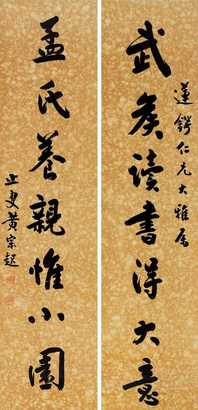 武侯读書得大意
蓮鍔仁兄大雅属
孟氏養親惟小園
止叟黄宗起